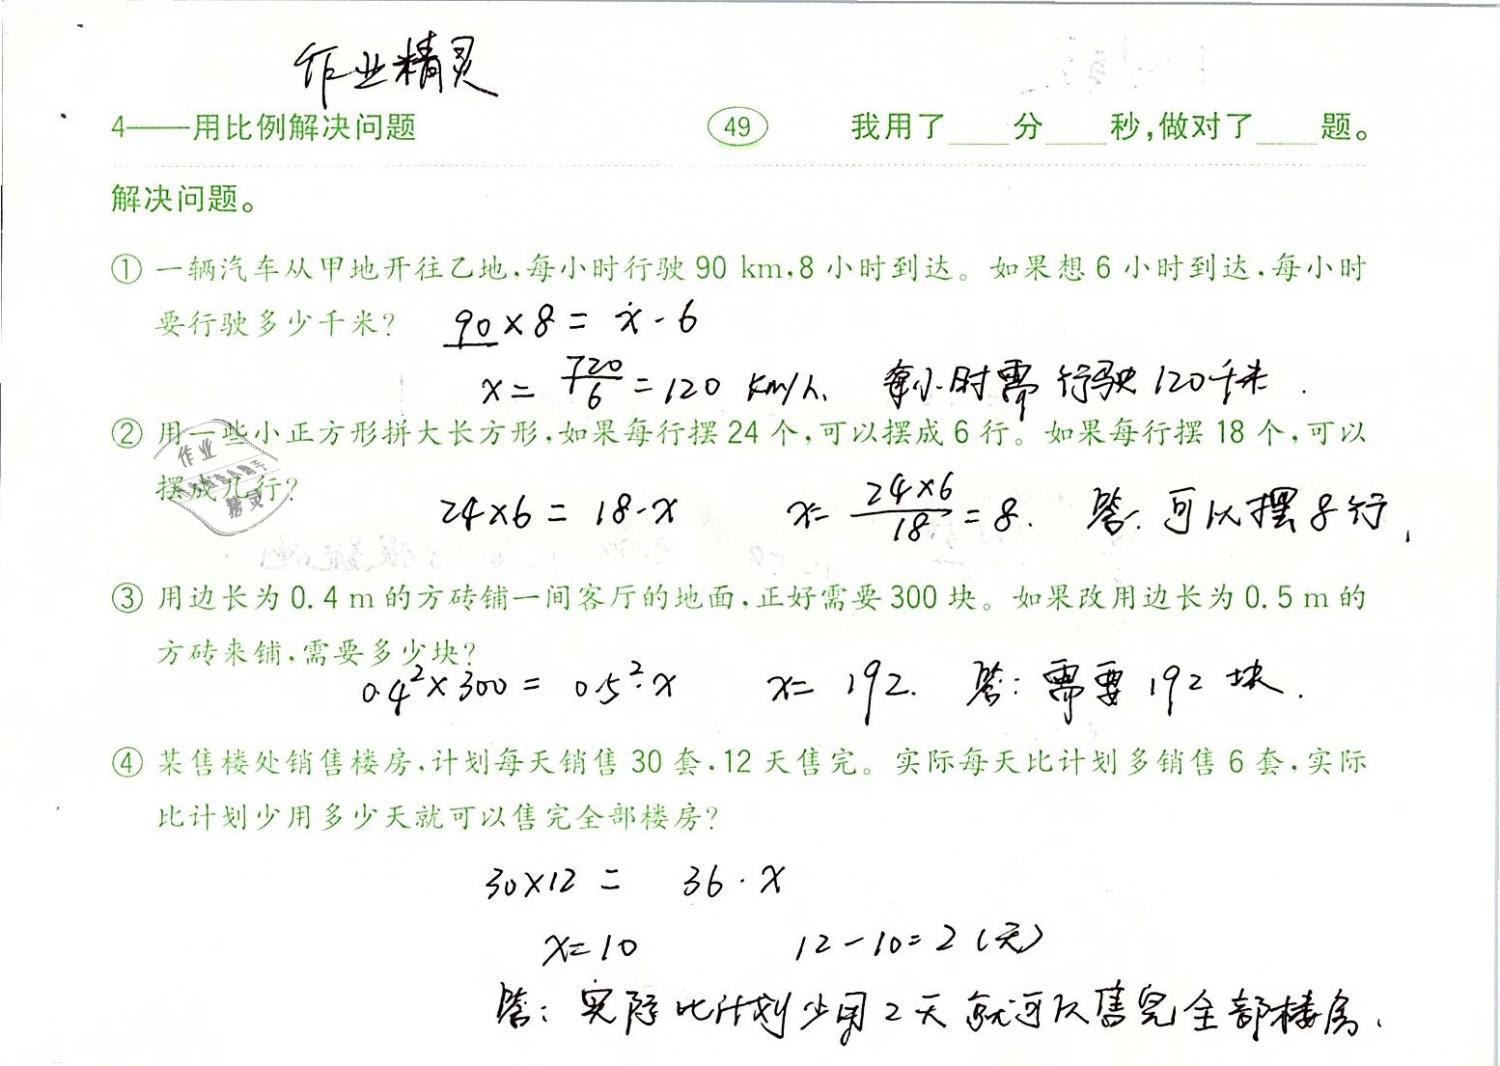 作业精灵
4——用比例解决问题 49 我用了____分____秒,做对了____题。
解决问题。
① 一辆汽车从甲地开往乙地,每小时行驶 90 km,8 小时到达。如果想 6 小时到达,每小时
要行驶多少千米? 90×8= x·6
x= 720/6 =120 km/h. 每小时需行驶120千米.
② 用一些小正方形拼大长方形,如果每行摆 24 个,可以摆成 6 行。如果每行摆 18 个,可以
摆成几行?
作业
精灵
24×6= 18·x x= 24×6/18 =8. 答:可以摆8行.
③ 用边长为 0.4 m 的方砖铺一间客厅的地面,正好需要 300 块。如果改用边长为 0.5 m 的
方砖来铺,需要多少块?
0.4²×300= 0.5²·x x= 192. 答:需要192块.
④ 某售楼处销售楼房,计划每天销售 30 套,12 天售完。实际每天比计划多销售 6 套,实际
比计划少用多少天就可以售完全部楼房?
30×12= 36·x
x=10 12-10=2(天)
答:实际比计划少用2天就可以售完全部楼房.